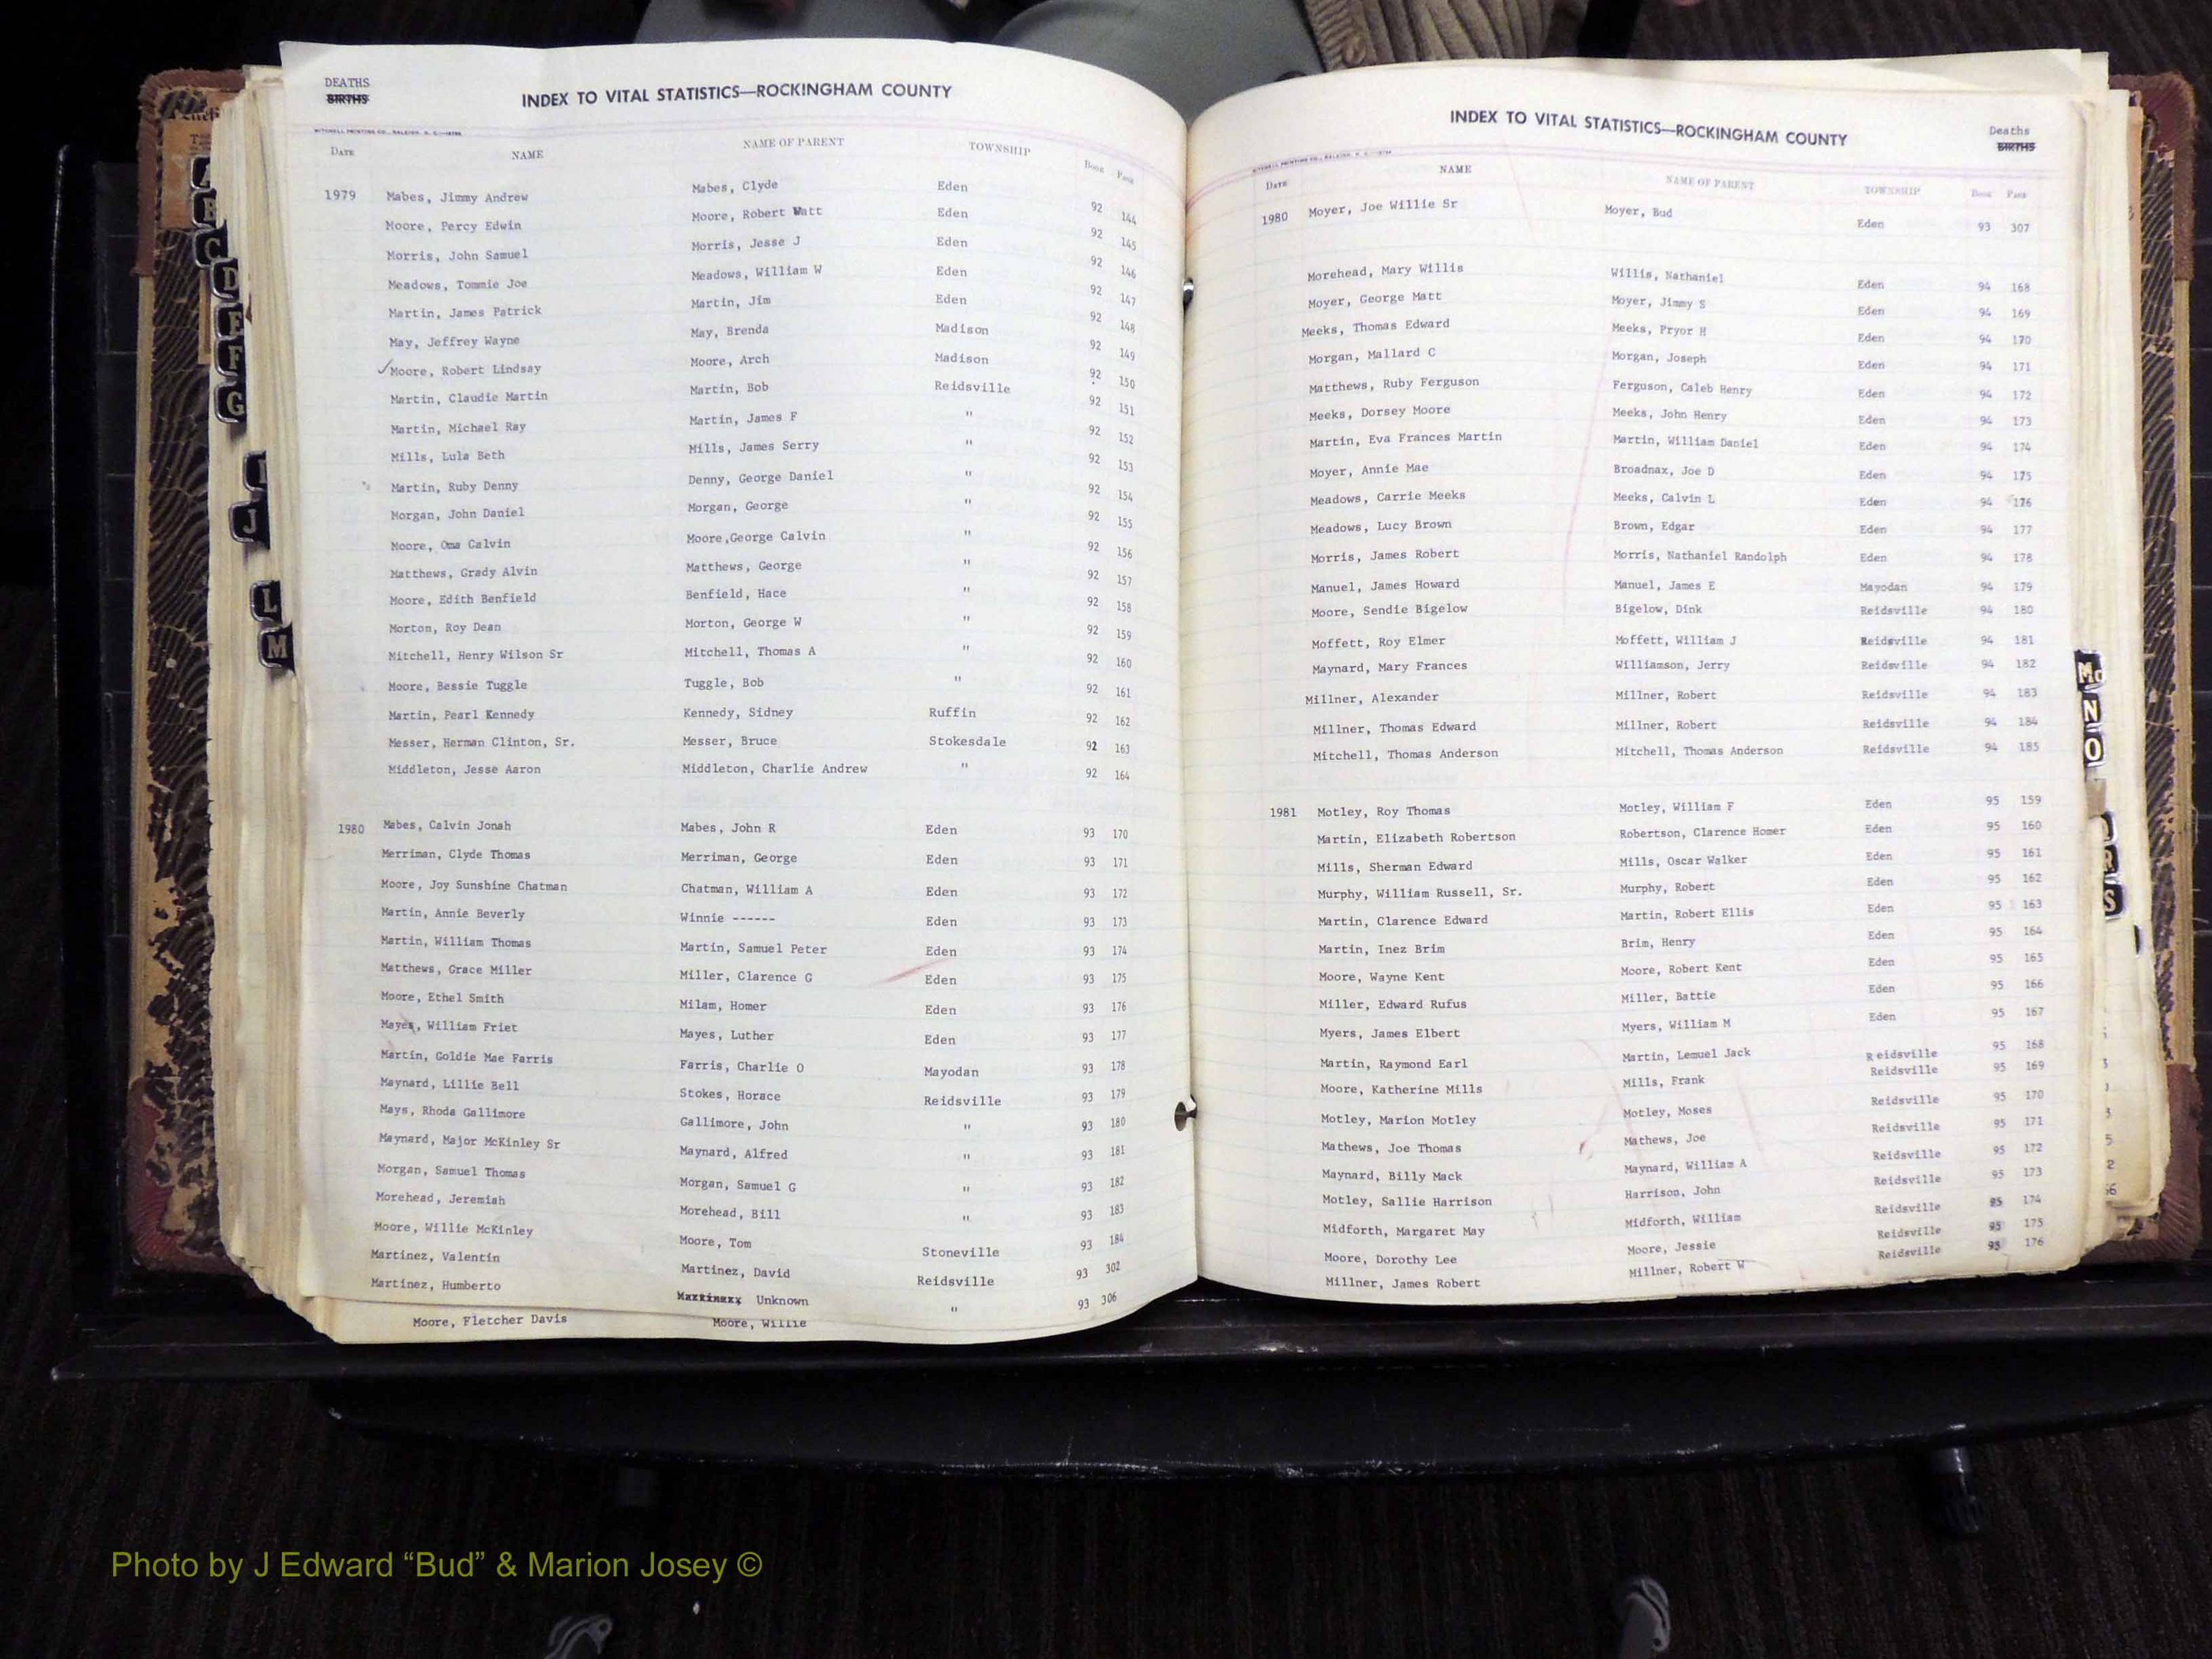 DEATHS
BIRTHS
INDEX TO VITAL STATISTICS—ROCKINGHAM COUNTY
MITCHELL PRINTING CO., RALEIGH, N. C.
DATE NAME NAME OF PARENT TOWNSHIP BOOK PAGE
1979 Mabes, Jimmy Andrew Mabes, Clyde Eden 92 144
Moore, Percy Edwin Moore, Robert Watt Eden 92 145
Morris, John Samuel Morris, Jesse J Eden 92 146
Meadows, Tommie Joe Meadows, William W Eden 92 147
Martin, James Patrick Martin, Jim Eden 92 148
May, Jeffrey Wayne May, Brenda Madison 92 149
✓Moore, Robert Lindsay Moore, Arch Madison 92 150
Martin, Claudie Martin Martin, Bob Reidsville 92 151
Martin, Michael Ray Martin, James F " 92 152
Mills, Lula Beth Mills, James Serry " 92 153
Martin, Ruby Denny Denny, George Daniel " 92 154
Morgan, John Daniel Morgan, George " 92 155
Moore, Oma Calvin Moore,George Calvin " 92 156
Matthews, Grady Alvin Matthews, George " 92 157
Moore, Edith Benfield Benfield, Hace " 92 158
Morton, Roy Dean Morton, George W " 92 159
Mitchell, Henry Wilson Sr Mitchell, Thomas A " 92 160
Moore, Bessie Tuggle Tuggle, Bob " 92 161
Martin, Pearl Kennedy Kennedy, Sidney Ruffin 92 162
Messer, Herman Clinton, Sr. Messer, Bruce Stokesdale 92 163
Middleton, Jesse Aaron Middleton, Charlie Andrew " 92 164
1980 Mabes, Calvin Jonah Mabes, John R Eden 93 170
Merriman, Clyde Thomas Merriman, George Eden 93 171
Moore, Joy Sunshine Chatman Chatman, William A Eden 93 172
Martin, Annie Beverly Winnie ------ Eden 93 173
Martin, William Thomas Martin, Samuel Peter Eden 93 174
Matthews, Grace Miller Miller, Clarence G Eden 93 175
Moore, Ethel Smith Milam, Homer Eden 93 176
Mayes, William Friet Mayes, Luther Eden 93 177
Martin, Goldie Mae Farris Farris, Charlie O Mayodan 93 178
Maynard, Lillie Bell Stokes, Horace Reidsville 93 179
Mays, Rhoda Gallimore Gallimore, John " 93 180
Maynard, Major McKinley Sr Maynard, Alfred " 93 181
Morgan, Samuel Thomas Morgan, Samuel G " 93 182
Morehead, Jeremiah Morehead, Bill " 93 183
Moore, Willie McKinley Moore, Tom Stoneville 93 184
Martinez, Valentin Martinez, David Reidsville 93 302
Martinez, Humberto Unknown " 93 306
Moore, Fletcher Davis Moore, Willie
INDEX TO VITAL STATISTICS—ROCKINGHAM COUNTY
Deaths
BIRTHS
DATE NAME NAME OF PARENT TOWNSHIP BOOK PAGE
1980 Moyer, Joe Willie Sr Moyer, Bud Eden 93 307
Morehead, Mary Willis Willis, Nathaniel Eden 94 168
Moyer, George Matt Moyer, Jimmy S Eden 94 169
Meeks, Thomas Edward Meeks, Pryor H Eden 94 170
Morgan, Mallard C Morgan, Joseph Eden 94 171
Matthews, Ruby Ferguson Ferguson, Caleb Henry Eden 94 172
Meeks, Dorsey Moore Meeks, John Henry Eden 94 173
Martin, Eva Frances Martin Martin, William Daniel Eden 94 174
Moyer, Annie Mae Broadnax, Joe D Eden 94 175
Meadows, Carrie Meeks Meeks, Calvin L Eden 94 176
Meadows, Lucy Brown Brown, Edgar Eden 94 177
Morris, James Robert Morris, Nathaniel Randolph Eden 94 178
Manuel, James Howard Manuel, James E Mayodan 94 179
Moore, Sendie Bigelow Bigelow, Dink Reidsville 94 180
Moffett, Roy Elmer Moffett, William J Reidsville 94 181
Maynard, Mary Frances Williamson, Jerry Reidsville 94 182
Millner, Alexander Millner, Robert Reidsville 94 183
Millner, Thomas Edward Millner, Robert Reidsville 94 184
Mitchell, Thomas Anderson Mitchell, Thomas Anderson Reidsville 94 185
1981 Motley, Roy Thomas Motley, William F Eden 95 159
Martin, Elizabeth Robertson Robertson, Clarence Homer Eden 95 160
Mills, Sherman Edward Mills, Oscar Walker Eden 95 161
Murphy, William Russell, Sr. Murphy, Robert Eden 95 162
Martin, Clarence Edward Martin, Robert Ellis Eden 95 163
Martin, Inez Brim Brim, Henry Eden 95 164
Moore, Wayne Kent Moore, Robert Kent Eden 95 165
Miller, Edward Rufus Miller, Battie Eden 95 166
Myers, James Elbert Myers, William M Eden 95 167
Martin, Raymond Earl Martin, Lemuel Jack R eidsville 95 168
Moore, Katherine Mills Mills, Frank Reidsville 95 169
Motley, Marion Motley Motley, Moses Reidsville 95 170
Mathews, Joe Thomas Mathews, Joe Reidsville 95 171
Maynard, Billy Mack Maynard, William A Reidsville 95 172
Motley, Sallie Harrison Harrison, John Reidsville 95 173
Midforth, Margaret May Midforth, William Reidsville 95 174
Moore, Dorothy Lee Moore, Jessie Reidsville 95 175
Millner, James Robert Millner, Robert W Reidsville 95 176
A
B
C
D
E
F
G
J
L
M
Mc
N
O
R
S
Photo by J Edward “Bud” & Marion Josey ©